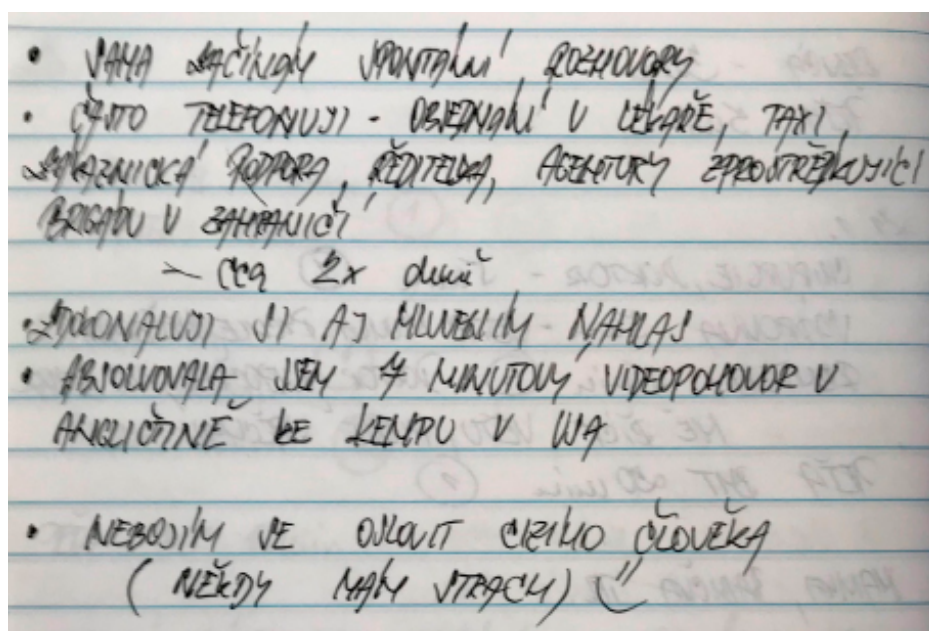 • SAMA ZAČÍNÁM SPONTÁNNÍ ROZHOVORY
• ČASTO TELEFONUJI - OBJEDNÁNÍ U LÉKAŘE, TAXI,
ZÁKAZNICKÁ PODPORA, ŘEDITELKA, AGENTURY ZPROSTŘEDKUJÍCÍ
BRIGÁDU V ZAHRANIČÍ
- CCA 2x denně
• ZDOKONALUJI SI AJ MLUVENÍM NAHLAS
• ABSOLVOVALA JSEM 7 MINUTOVÝ VIDEOPOHOVOR V
ANGLIČTINĚ KE KEMPU V
• NEBOJÍM SE OSLOVIT CIZÍHO ČLOVĚKA
(NĚKDY MÁM STRACH)